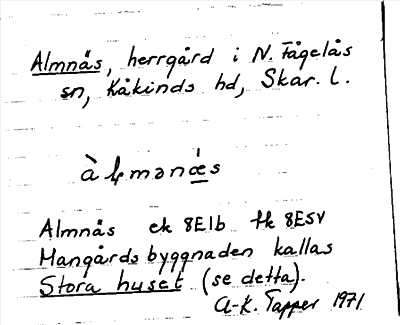 Almnäs, herrgård i N. Fågelås
sn, Kåkinds hd, Skar. l.
àɫmənǽs
Almnäs ek 8E1b tk 8ESV
Mangårdsbyggnaden kallas
Stora huset (se detta).
A-K. Tapper 1971